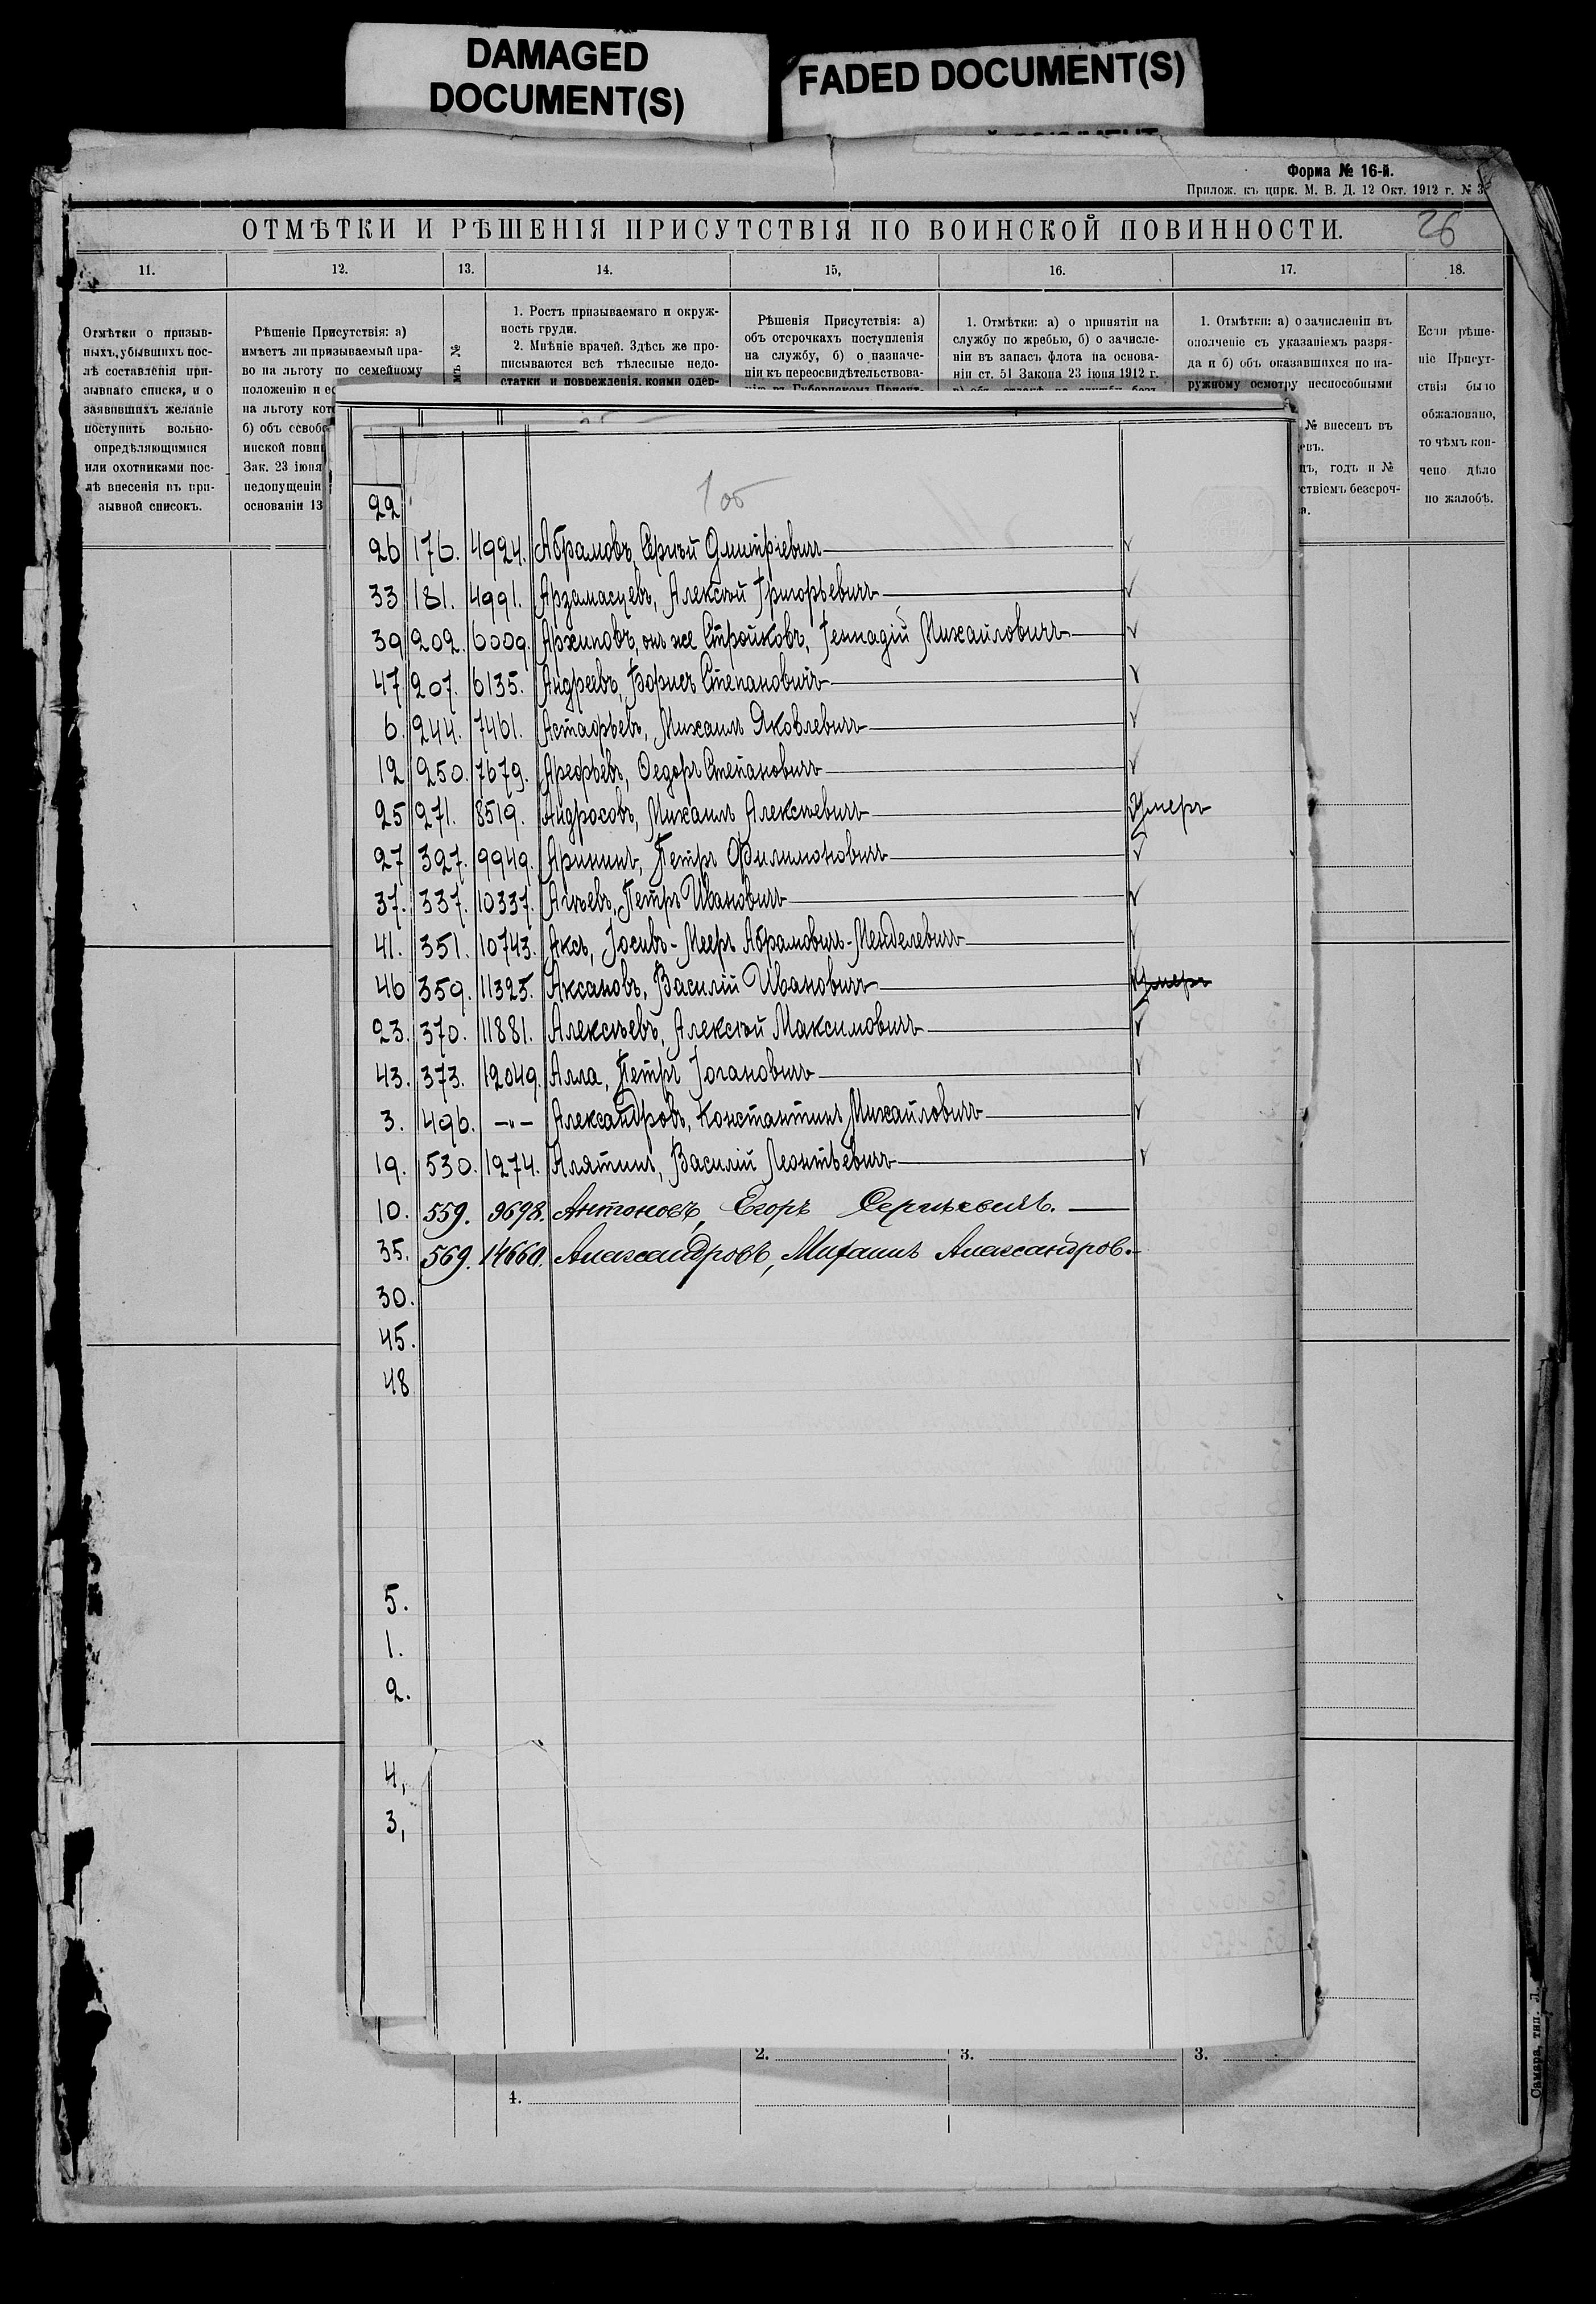 DAMAGED
DOCUMENT(S)
FADED DOCUMENT(S)
Форма № 16-й.
Прилож. къ цирк. М. В. Д. 12 Окт. 1912 г. № 3
ОТМѢТКИ И РѢШЕНІЯ ПРИСУТСТВІЯ ПО ВОИНСКОЙ ПОВИННОСТИ.
26
11. 12. 13. 14. 15, 16. 17. 18.
Отмѣтки о призыв-
ныхъ, убывшихъ пос-
лѣ составленія при-
зывнаго списка, и о
заявившихъ желаніе
поступить вольно-
опредѣляющимися
или охотниками пос-
лѣ внесенія въ при-
зывной списокъ.
Рѣшеніе Присутствія: а)
имѣетъ ли призываемый пра-
во на льготу по семейному
положенію и
на льготу
б) объ освоб
инской повин
Зак. 23 іюня
недопущеніи
основаніи 13
№
1. Ростъ призываемаго и окруж-
ность груди.
2. Мнѣніе врачей. Здѣсь же про-
писываются всѣ тѣлесные недо-
статки и поврежденія, коими одер-
Рѣшенія Присутствія: а)
объ отсрочкахъ поступленія
на службу, б) о назначе-
ніи къ переосвидѣтельствова-
1. Отмѣтки: а) о принятіи на
службу по жребью, б) о зачисле-
ніи въ запасъ флота на основа-
ніи ст. 51 Закона 23 іюня 1912 г.
1. Отмѣтки: а) о зачисленіи въ
ополченіе съ указаніемъ разря-
да и б) объ оказавшихся по на-
ружному осмотру неспособными
№ внесенъ въ
годъ и №
ствіемъ безсроч-
Если рѣше-
ніе Присут-
ствія было
обжаловано,
то чѣмъ кон-
чено дѣло
по жалобѣ.
22
26 176. 4924. Абрамовъ, Сергѣй Дмитріевичъ
33 181. 4991. Арзамасцевъ, Алексѣй Григорьевичъ
39 202. 6009. Архиповъ, онъ же Стройковъ, Геннадій Михайловичъ
47 207. 6135. Андреевъ, Борисъ Степановичъ
6. 244. 7461. Астафьевъ, Михаилъ Яковлевичъ
12 250. 7679. Арефьевъ, Ѳедоръ Степановичъ
25 271. 8519. Андросовъ, Михаилъ Алексѣевичъ Умеръ
27 327. 9949. Арининъ, Петръ Филимоновичъ
37. 337. 10337. Агѣевъ, Петръ Ивановичъ
41. 351. 10743. Аксъ, Іосивъ-Мееръ Абрамовичъ-Менделевичъ
46 359. 11325. Аксановъ, Василій Ивановичъ Умеръ
23. 370. 11881. Алексѣевъ, Алексѣй Максимовичъ
43. 373. 12049. Алла, Петръ Іогановичъ
3. 496. —„— Александровъ, Константинъ Михайловичъ
19. 530. 1274. Алятинъ, Василій Леонтьевичъ
10. 559. 9698. Антоновъ, Егоръ Сергѣевичъ.
35. 569. 14660. Александровъ, Михаилъ Александров.
30.
45.
48
5.
1.
2.
4,
3,
2. 3. 3.
4.
Самара, тип.